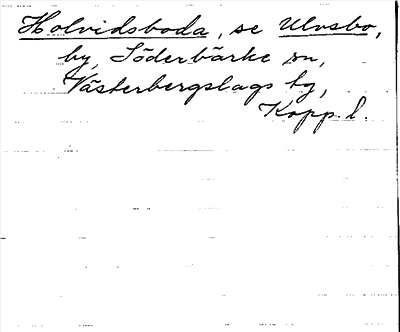 Holvidsboda, se Ulvsbo,
by, Söderbärke sn,
Västerbergslags tg,
Kopp. l.